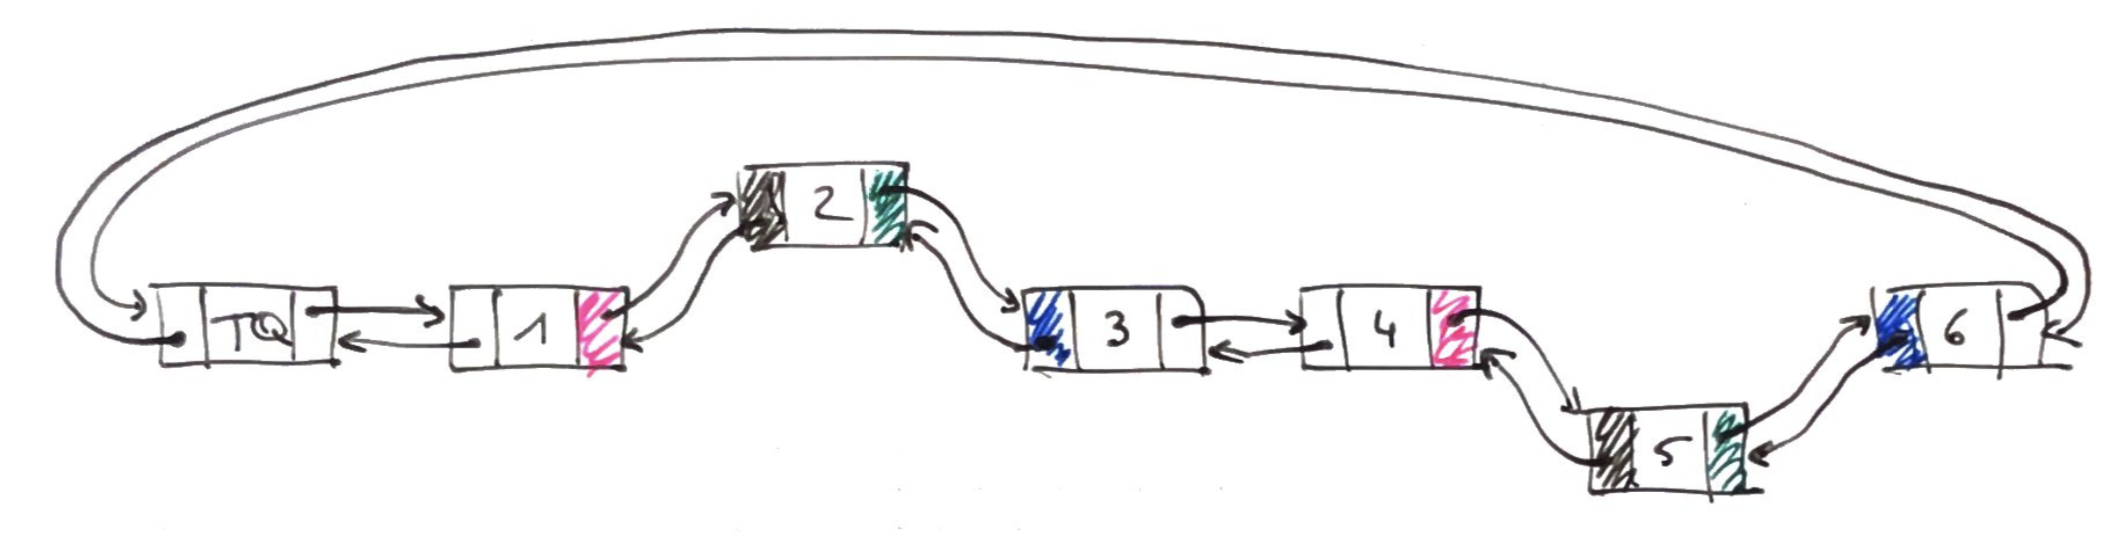 TQ 1 2 3 4 5 6